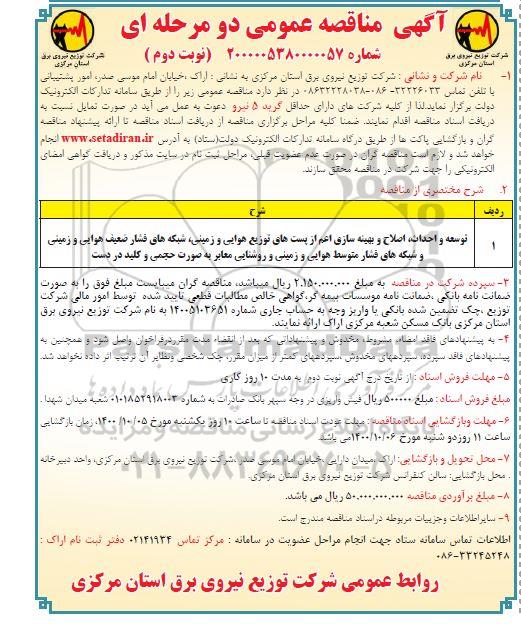 آگهی مناقصه عمومی دو مرحله ای
شماره ۲۰۰۰۰۰۵۳۸۰۰۰۰۰۵۷ (نوبت دوم)
شرکت توزیع نیروی برق
استان مرکزی
شرکت توزیع نیروی برق
استان مرکزی
۱- نام شرکت و نشانی : شرکت توزیع نیروی برق استان مرکزی به نشانی : اراک ،خیابان امام موسی صدر، امور پشتیبانی
با تلفن تماس ۳۲۲۲۶۰۳۳-۰۸۶ -۰۸۶۳۲۲۲۸۰۳۸ در نظر دارد مناقصه عمومی زیر را از طریق سامانه تدارکات الکترونیک
دولت برگزار نماید.لذا از کلیه شرکت های دارای حداقل گرید ۵ نیرو دعوت به عمل می آید در صورت تمایل نسبت به
دریافت اسناد مناقصه اقدام نمایند. ضمنا کلیه مراحل برگزاری مناقصه از دریافت اسناد مناقصه تا ارائه پیشنهاد مناقصه
گران و بازگشایی پاکت ها از طریق درگاه سامانه تدارکات الکترونیک دولت(ستاد) به آدرس www.setadiran.ir انجام
خواهد شد و لازم است مناقصه گران در صورت عدم عضویت قبلی، مراحل ثبت نام در سایت مذکور و دریافت گواهی امضای
الکترونیکی را جهت شرکت در مناقصه محقق سازند.
۲. شرح مختصری از مناقصه
ردیف شرح
۱ توسعه و احداث، اصلاح و بهینه سازی اعم از پست های توزیع هوایی و زمینی، شبکه های فشار ضعیف هوایی و زمینی
و شبکه های فشار متوسط هوایی و زمینی و روشنایی معابر به صورت حجمی و کلید در دست
۳- سپرده شرکت در مناقصه به مبلغ ۲.۱۵۰.۰۰۰.۰۰۰ ریال میباشد، مناقصه گران میبایست مبلغ فوق را به صورت
ضمانت نامه بانکی ،ضمانت نامه موسسات بیمه گر،گواهی خالص مطالبات قطعی تایید شده توسط امور مالی شرکت
توزیع ،چک تضمین شده بانکی یا واریز وجه به حساب جاری شماره ۱۴۰۰۵۱۰۳۶۵۱ به نام شرکت توزیع نیروی برق
استان مرکزی بانک مسکن شعبه مرکزی اراک ارائه نمایند.
۴- به پیشنهادهای فاقد امضاء، مشروط، مخدوش و پیشنهاداتی که بعد از انقضاء مدت مقرردرفراخوان واصل شود و همچنین به
پیشنهادهای فاقد سپرده، سپردههای مخدوش ،سپردههای کمتر از میزان مقرر، چک شخصی ونظایر آن ترتیب اثر داده نخواهد شد.
۵- مهلت فروش اسناد : از تاریخ درج آگهی نوبت دوم/ به مدت ۱۰ روز کاری
مبلغ فروش اسناد : مبلغ ۵۰۰۰۰۰ ریال فیش واریزی در وجه سپهر بانک صادرات به شماره ۰۱۰۱۸۵۲۹۱۸۰۰۳ شعبه میدان شهدا .
۶- مهلت وبازگشایی اسناد مناقصه : مهلت عودت اسناد مناقصه تا ساعت ۱۰ روز یکشنبه مورخ ۱۴۰۰/۱۰/۰۵، زمان بازگشایی
ساعت ۱۱ روزدو شنبه مورخ ۱۴۰۰/۱۰/۰۶می باشد.
۷- محل تحویل و بازگشایی: اراک ،میدان دارایی ،خیابان امام موسی صدر ،شرکت توزیع نیروی برق استان مرکزی، واحد دبیرخانه
. محل بازگشایی: سالن کنفرانس شرکت توزیع نیروی برق استان مرکزی.
۸- مبلغ برآوردی مناقصه ۵۰.۰۰۰.۰۰۰.۰۰۰ ریال می باشد.
۹- سایراطلاعات وجزییات مربوطه دراسناد مناقصه مندرج است.
اطلاعات تماس سامانه ستاد جهت انجام مراحل عضویت در سامانه : مرکز تماس ۰۲۱۴۱۹۳۴ دفتر ثبت نام اراک :
۰۸۶-۳۳۲۴۵۲۴۸
روابط عمومی شرکت توزیع نیروی برق استان مرکزی